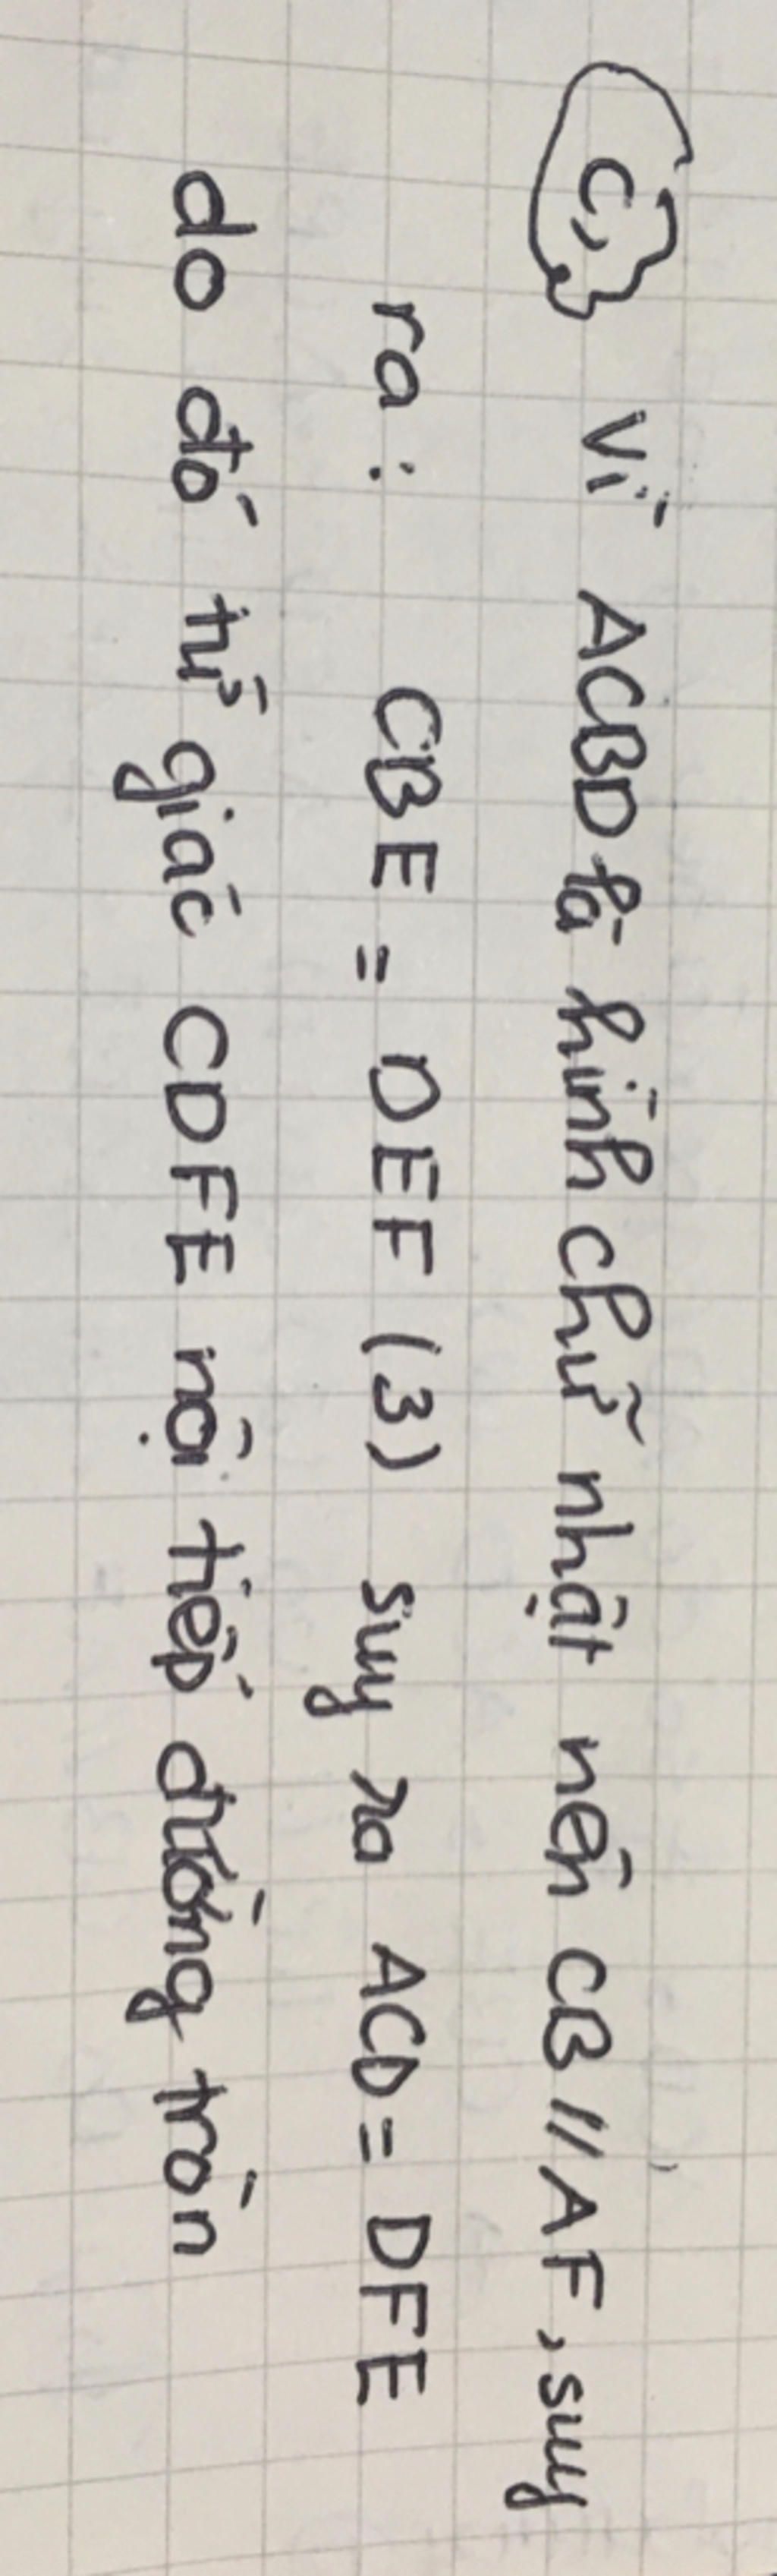 c, Vì ACBD là hình chữ nhật nên CB // AF, suy
ra : CBE = DEF (3) suy ra ACD = DFE
do đó tứ giác CDFE nội tiếp đường tròn